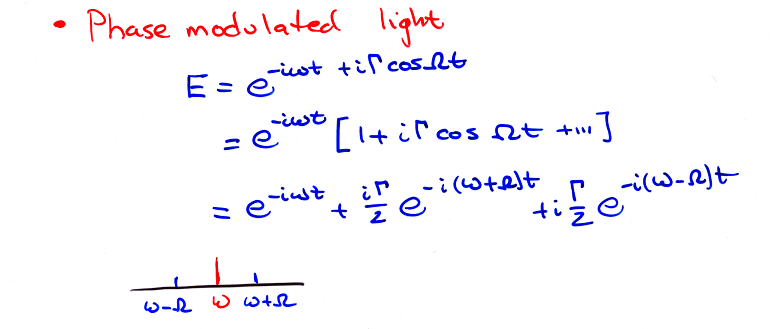 • Phase modulated light
E = e^{-iωt + iΓ cos Ωt}
= e^{-iωt} [1 + iΓ cos Ωt + ...]
= e^{-iωt} + \frac{iΓ}{2} e^{-i(ω+Ω)t} + i\frac{Γ}{2} e^{-i(ω-Ω)t}
ω-Ω ω ω+Ω